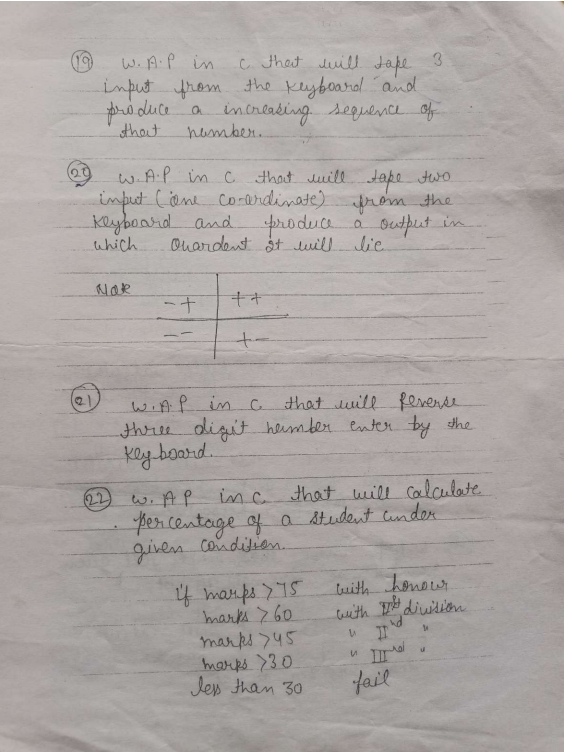 19 W.A.P in c that will tape 3
input from the keyboard and
produce a increasing sequence of
that number.
20 W.A.P in C that will tape two
input (one co-ordinate) from the
keyboard and produce a output in
which Quardent It will lie
Note
- + + +
- - + -
21 W.A.P in C that will Reverse
three digit number enter by the
keyboard.
22 W.A P in C that will calculate
percentage of a student under
given condition.
if marks > 75 with honour
marks > 60 with Ist division
marks > 45 " IInd "
marks > 30 " IIIrd "
less than 30 fail